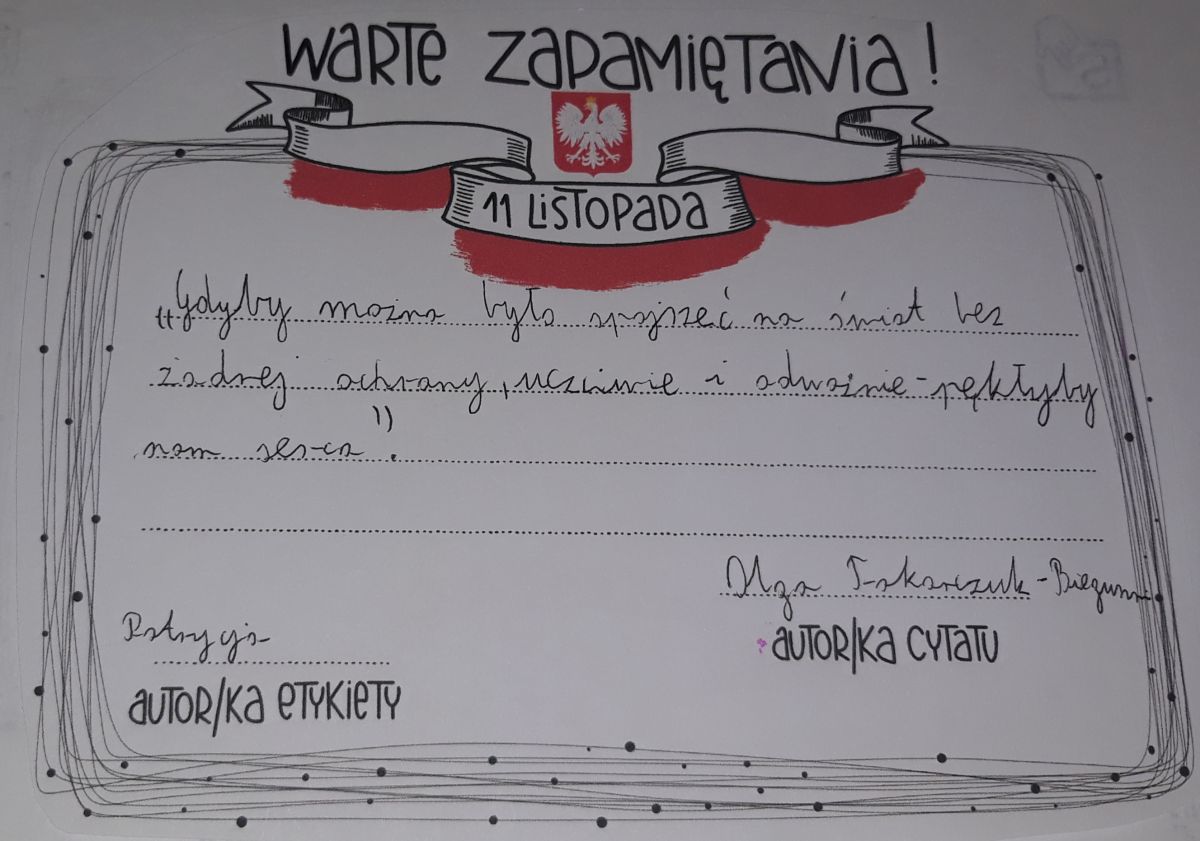 WARTE ZAPAMIĘTANIA!
11 LISTOPADA
„Gdyby można było spojrzeć na świat bez
żadnej ochrony, uczciwie i odważnie - pękłyby
nam serca".
Olga Tokarczuk - Bieguni
AUTOR/KA CYTATU
Patrycja
AUTOR/KA ETYKIETY